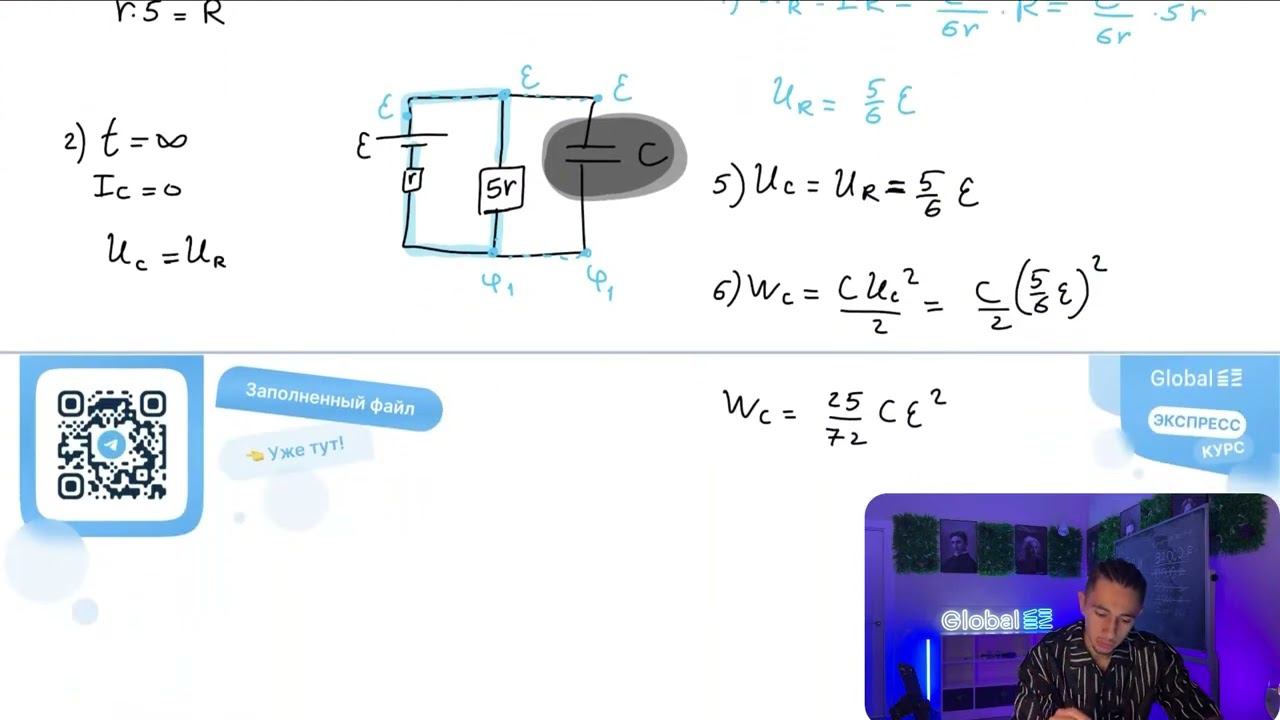 r·5 = R
6r
6r
· 5r
2) t = ∞
I_C = 0
U_C = U_R
ε
ε
ε
ε
r
5r
C
φ₁
φ₁
U_R = 5/6 ε
5) U_C = U_R = 5/6 ε
6) W_C = C U_C²/2 = C/2 (5/6 ε)²
W_C = 25/72 C ε²
Заполненный файл
👈 Уже тут!
Global EE
ЭКСПРЕСС
КУРС
Global EE